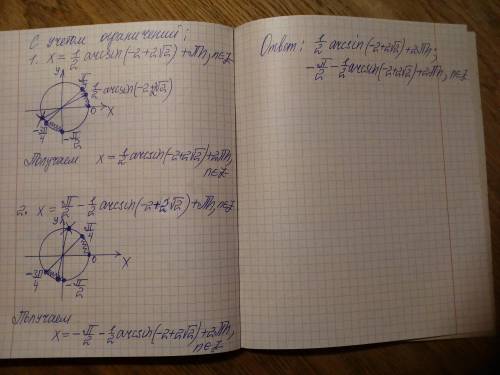 С учетом ограничений:
1. x = 1/2 arcsin(-2+2√2) + πn, n∈Z
y
π/4
1/2 arcsin(-2+2√2)
0
x
-3π/4
-π/2
Получаем x = 1/2 arcsin(-2+2√2)+2πn,
n∈Z
2. x = π/2 - 1/2 arcsin(-2+2√2)+πn, n∈Z
y
π/4
0
x
-3π/4
-π/2
Получаем
x = -π/2 - 1/2 arcsin(-2+2√2)+2πn,
n∈Z
Ответ: 1/2 arcsin(-2+2√2)+2πn;
-π/2 - 1/2 arcsin(-2+2√2)+2πn, n∈Z